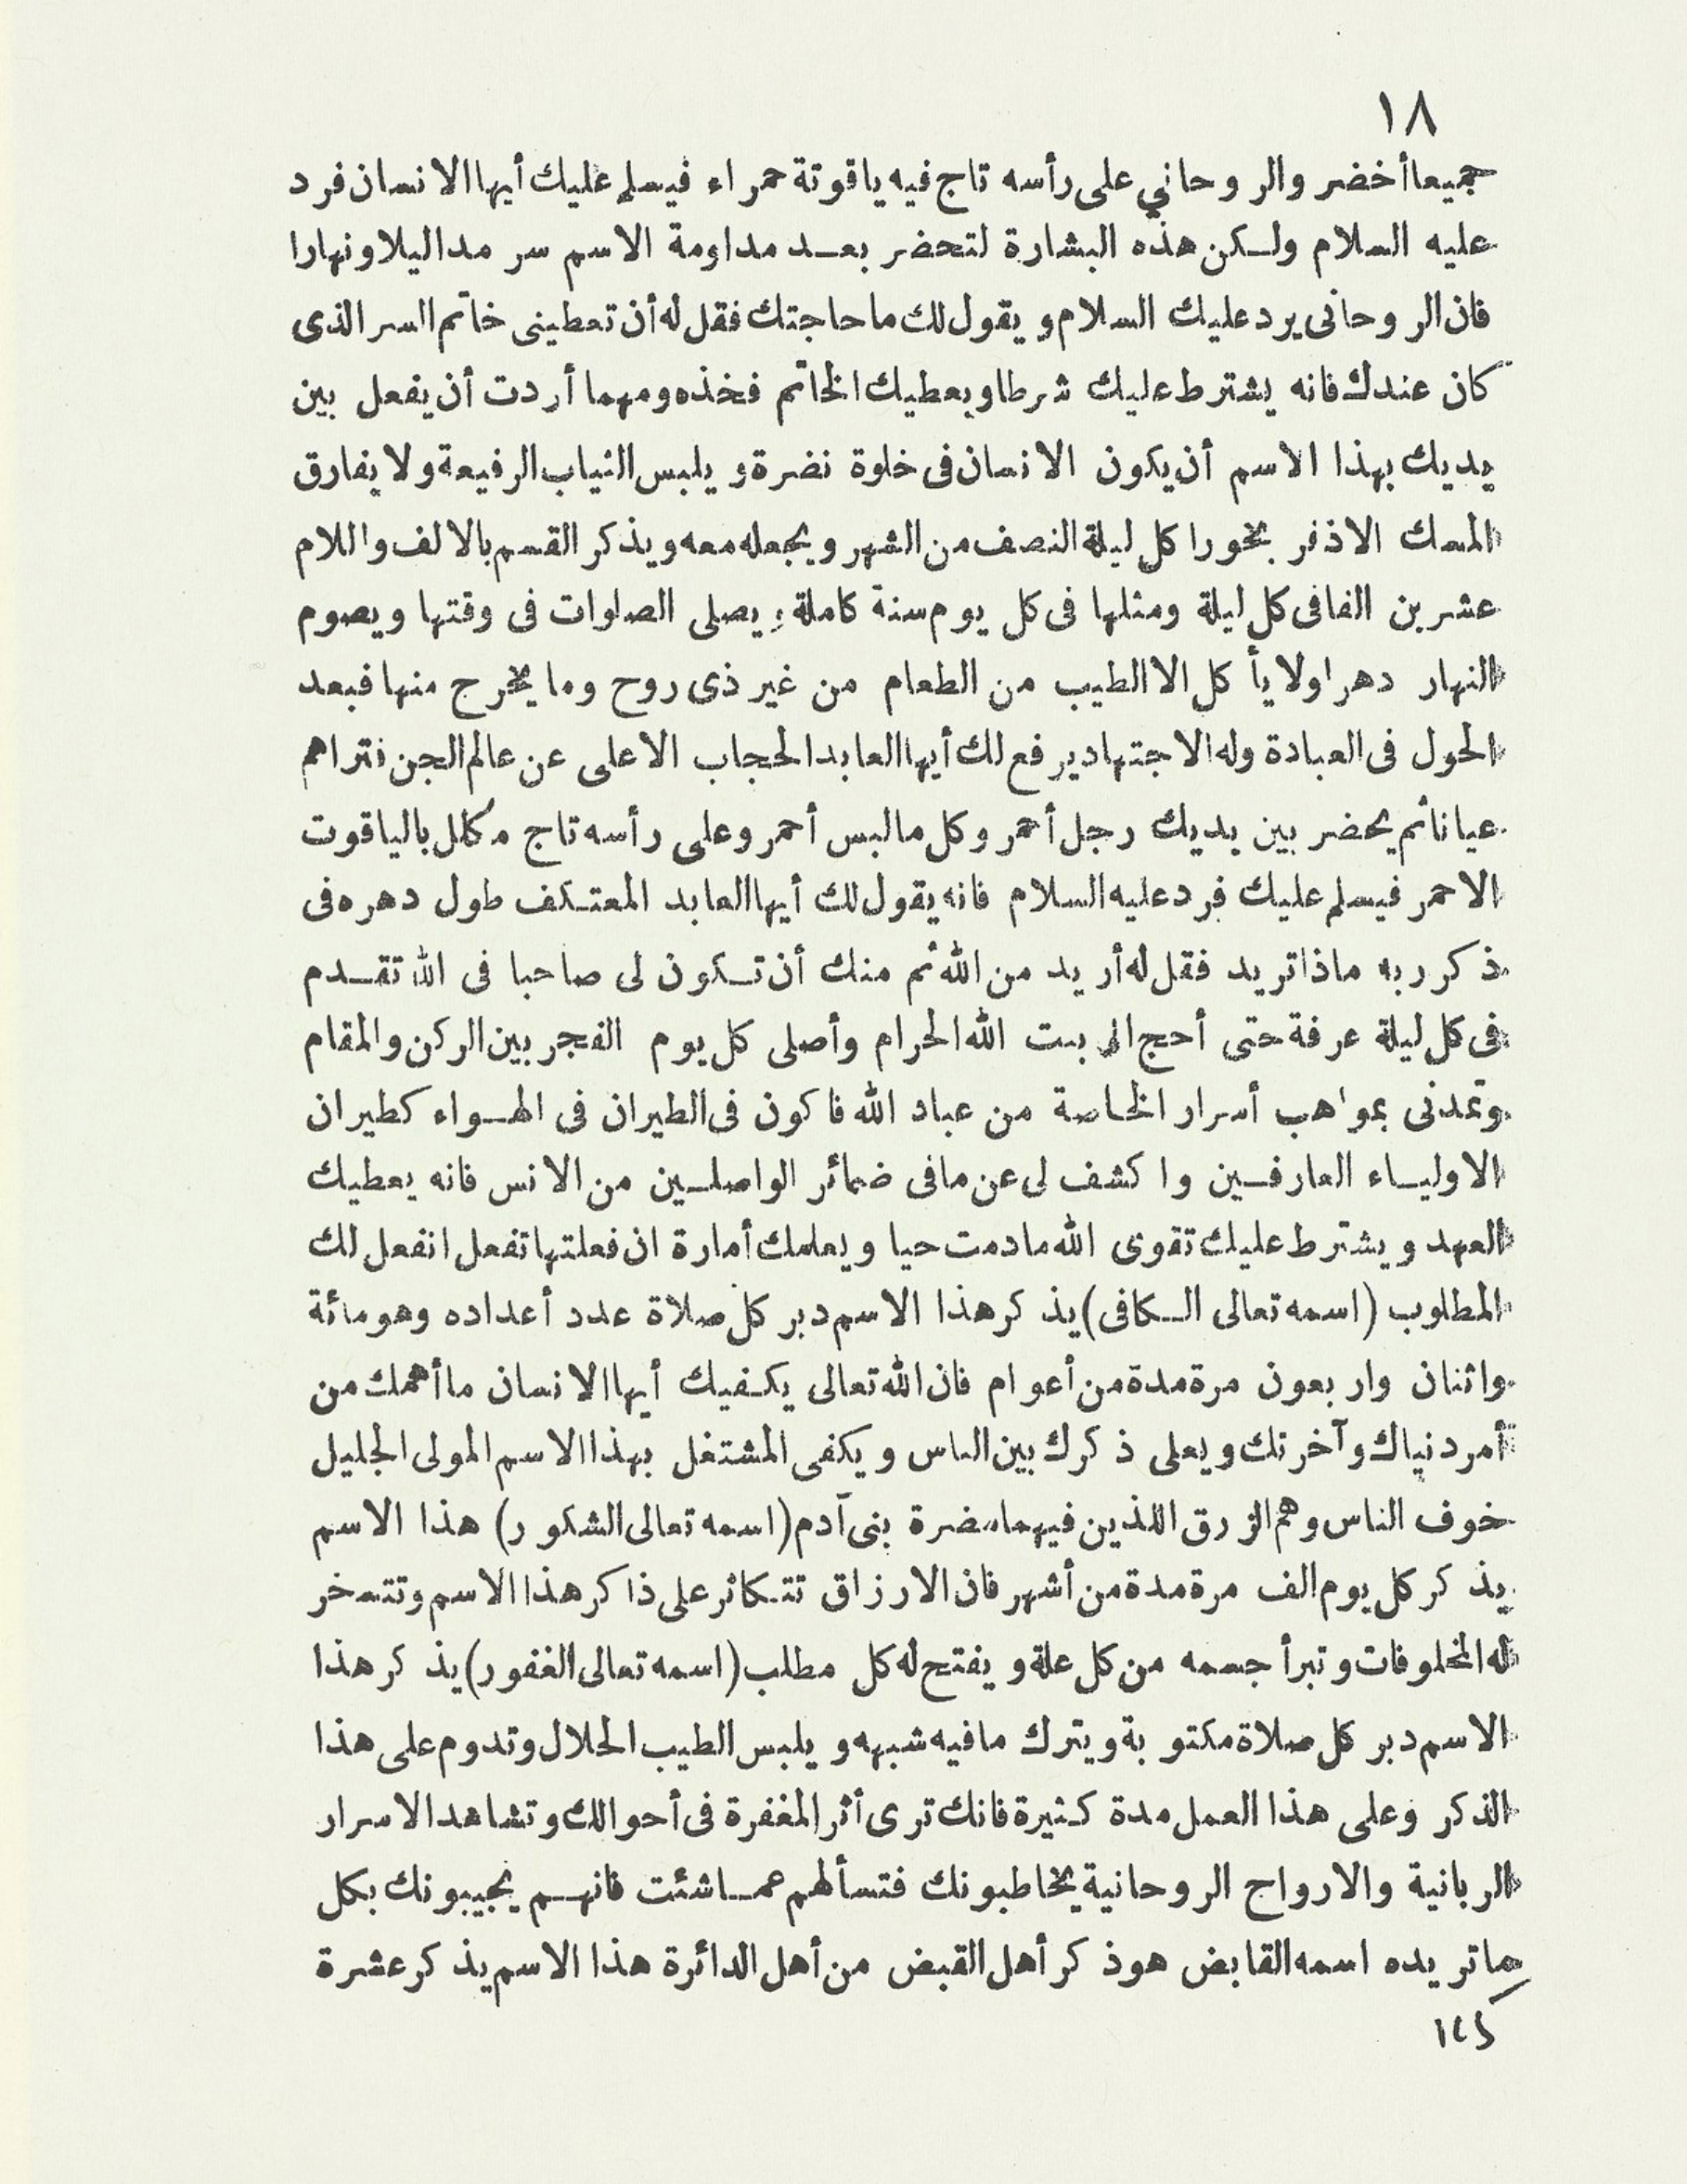 ١٨
جميعا أخضر والروحاني على رأسه تاج فيه ياقوتة حمراء فيسلم عليك أيها الانسان فرد
عليه السلام ولكن هذه البشارة لتحضر بعد مداومة الاسم سر مدا ليلا ونهارا
فان الروحانى يرد عليك السلام ويقول لك ما حاجتك فقل له أن تعطينى خاتم السر الذى
كان عندك فانه يشترط عليك شرطا ويعطيك الخاتم فخذه ومهما أردت أن يفعل بين
يديك بهذا الاسم أن يكون الانسان فى خلوة نضرة ويلبس الثياب الرفيعة ولا يفارق
المسك الاذفر بخورا كل ليلة النصف من الشهر ويجعله معه ويذكر القسم بالالف واللام
عشرين الفا فى كل ليلة ومثلها فى كل يوم سنة كاملة ويصلى الصلوات فى وقتها ويصوم
النهار دهرا ولا يأكل الا الطيب من الطعام من غير ذى روح وما يخرج منها فبعد
الحول فى العبادة وله الاجتهاد يرفع لك أيها العابد الحجاب الاعلى عن عالم الجن فتراهم
عيانا ثم يحضر بين يديك رجل أحمر وكل ما لبس أحمر وعلى رأسه تاج مكلل بالياقوت
الاحمر فيسلم عليك فرد عليه السلام فانه يقول لك أيها العابد المعتكف طول دهره فى
ذكر ربه ماذا تريد فقل له أريد من الله ثم منك أن تكون لى صاحبا فى الله تقدم
فى كل ليلة عرفة حتى أحج الى بيت الله الحرام وأصلى كل يوم الفجر بين الركن والمقام
وتمدنى بمواهب أسرار الخاصة من عباد الله فاكون فى الطيران فى الهواء كطيران
الاولياء العارفين واكشف لى عن ما فى ضمائر الواصلين من الانس فانه يعطيك
العهد ويشترط عليك تقوى الله ما دمت حيا ويعلمك أمارة ان فعلتها تفعل انفعل لك
المطلوب (اسمه تعالى الكافى) يذكر هذا الاسم دبر كل صلاة عدد أعداده وهو مائة
واثنان واربعون مرة مدة من أعوام فان الله تعالى يكفيك أيها الانسان ما أهمك من
أمر دنياك وآخرتك ويعلى ذكرك بين الناس ويكفى المشتغل بهذا الاسم المولى الجليل
خوف الناس وهم الرزق اللذين فيهما مضرة بنى آدم (اسمه تعالى الشكور) هذا الاسم
يذكر كل يوم الف مرة مدة من أشهر فان الارزاق تتكاثر على ذاكر هذا الاسم وتتسخر
له المخلوقات وتبرأ جسمه من كل علة ويفتح له كل مطلب (اسمه تعالى الغفور) يذكر هذا
الاسم دبر كل صلاة مكتوبة ويترك ما فيه شبهه ويلبس الطيب الحلال وتدوم على هذا
الذكر وعلى هذا العمل مدة كثيرة فانك ترى أثر المغفرة فى أحوالك وتشاهد الاسرار
الربانية والارواح الروحانية يخاطبونك فتسألهم عما شئت فانهم يجيبونك بكل
ما تريده اسمه القابض هو ذكر أهل القبض من أهل الدائرة هذا الاسم يذكر عشرة